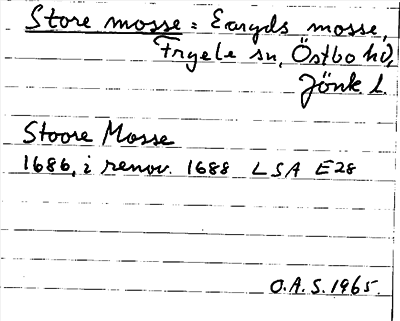 Store mosse = Earyds mosse,
Fryele sn, Östbo hd,
Jönk. l.
Stoore Mosse
1686, i renov. 1688 LSA E28
O.A.S. 1965.